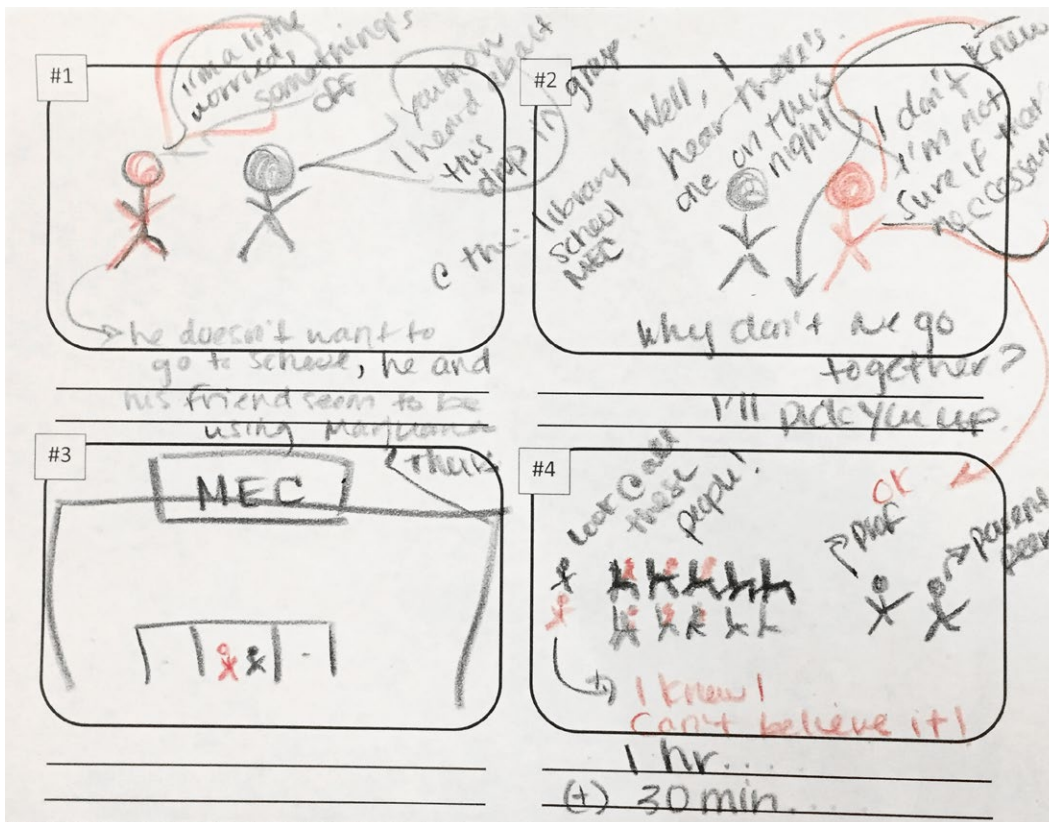 #1
I'm a little
worried,
something's
off
you know
I heard about
this
drop in
group
@ the library
school
MEC
he doesn't want to
go to school, he and
his friend seem to be
using Marijuana
#2
Well, I
hear there's
one on thurs
night
I don't know
I'm not
sure if that's
neccessary
Why don't we go
together?
I'll pick you up.
#3
MEC
#4
Look @ all
these
people!
OK
prof
parent
peer
I know!
Can't believe it!
1 hr....
(+) 30 min....